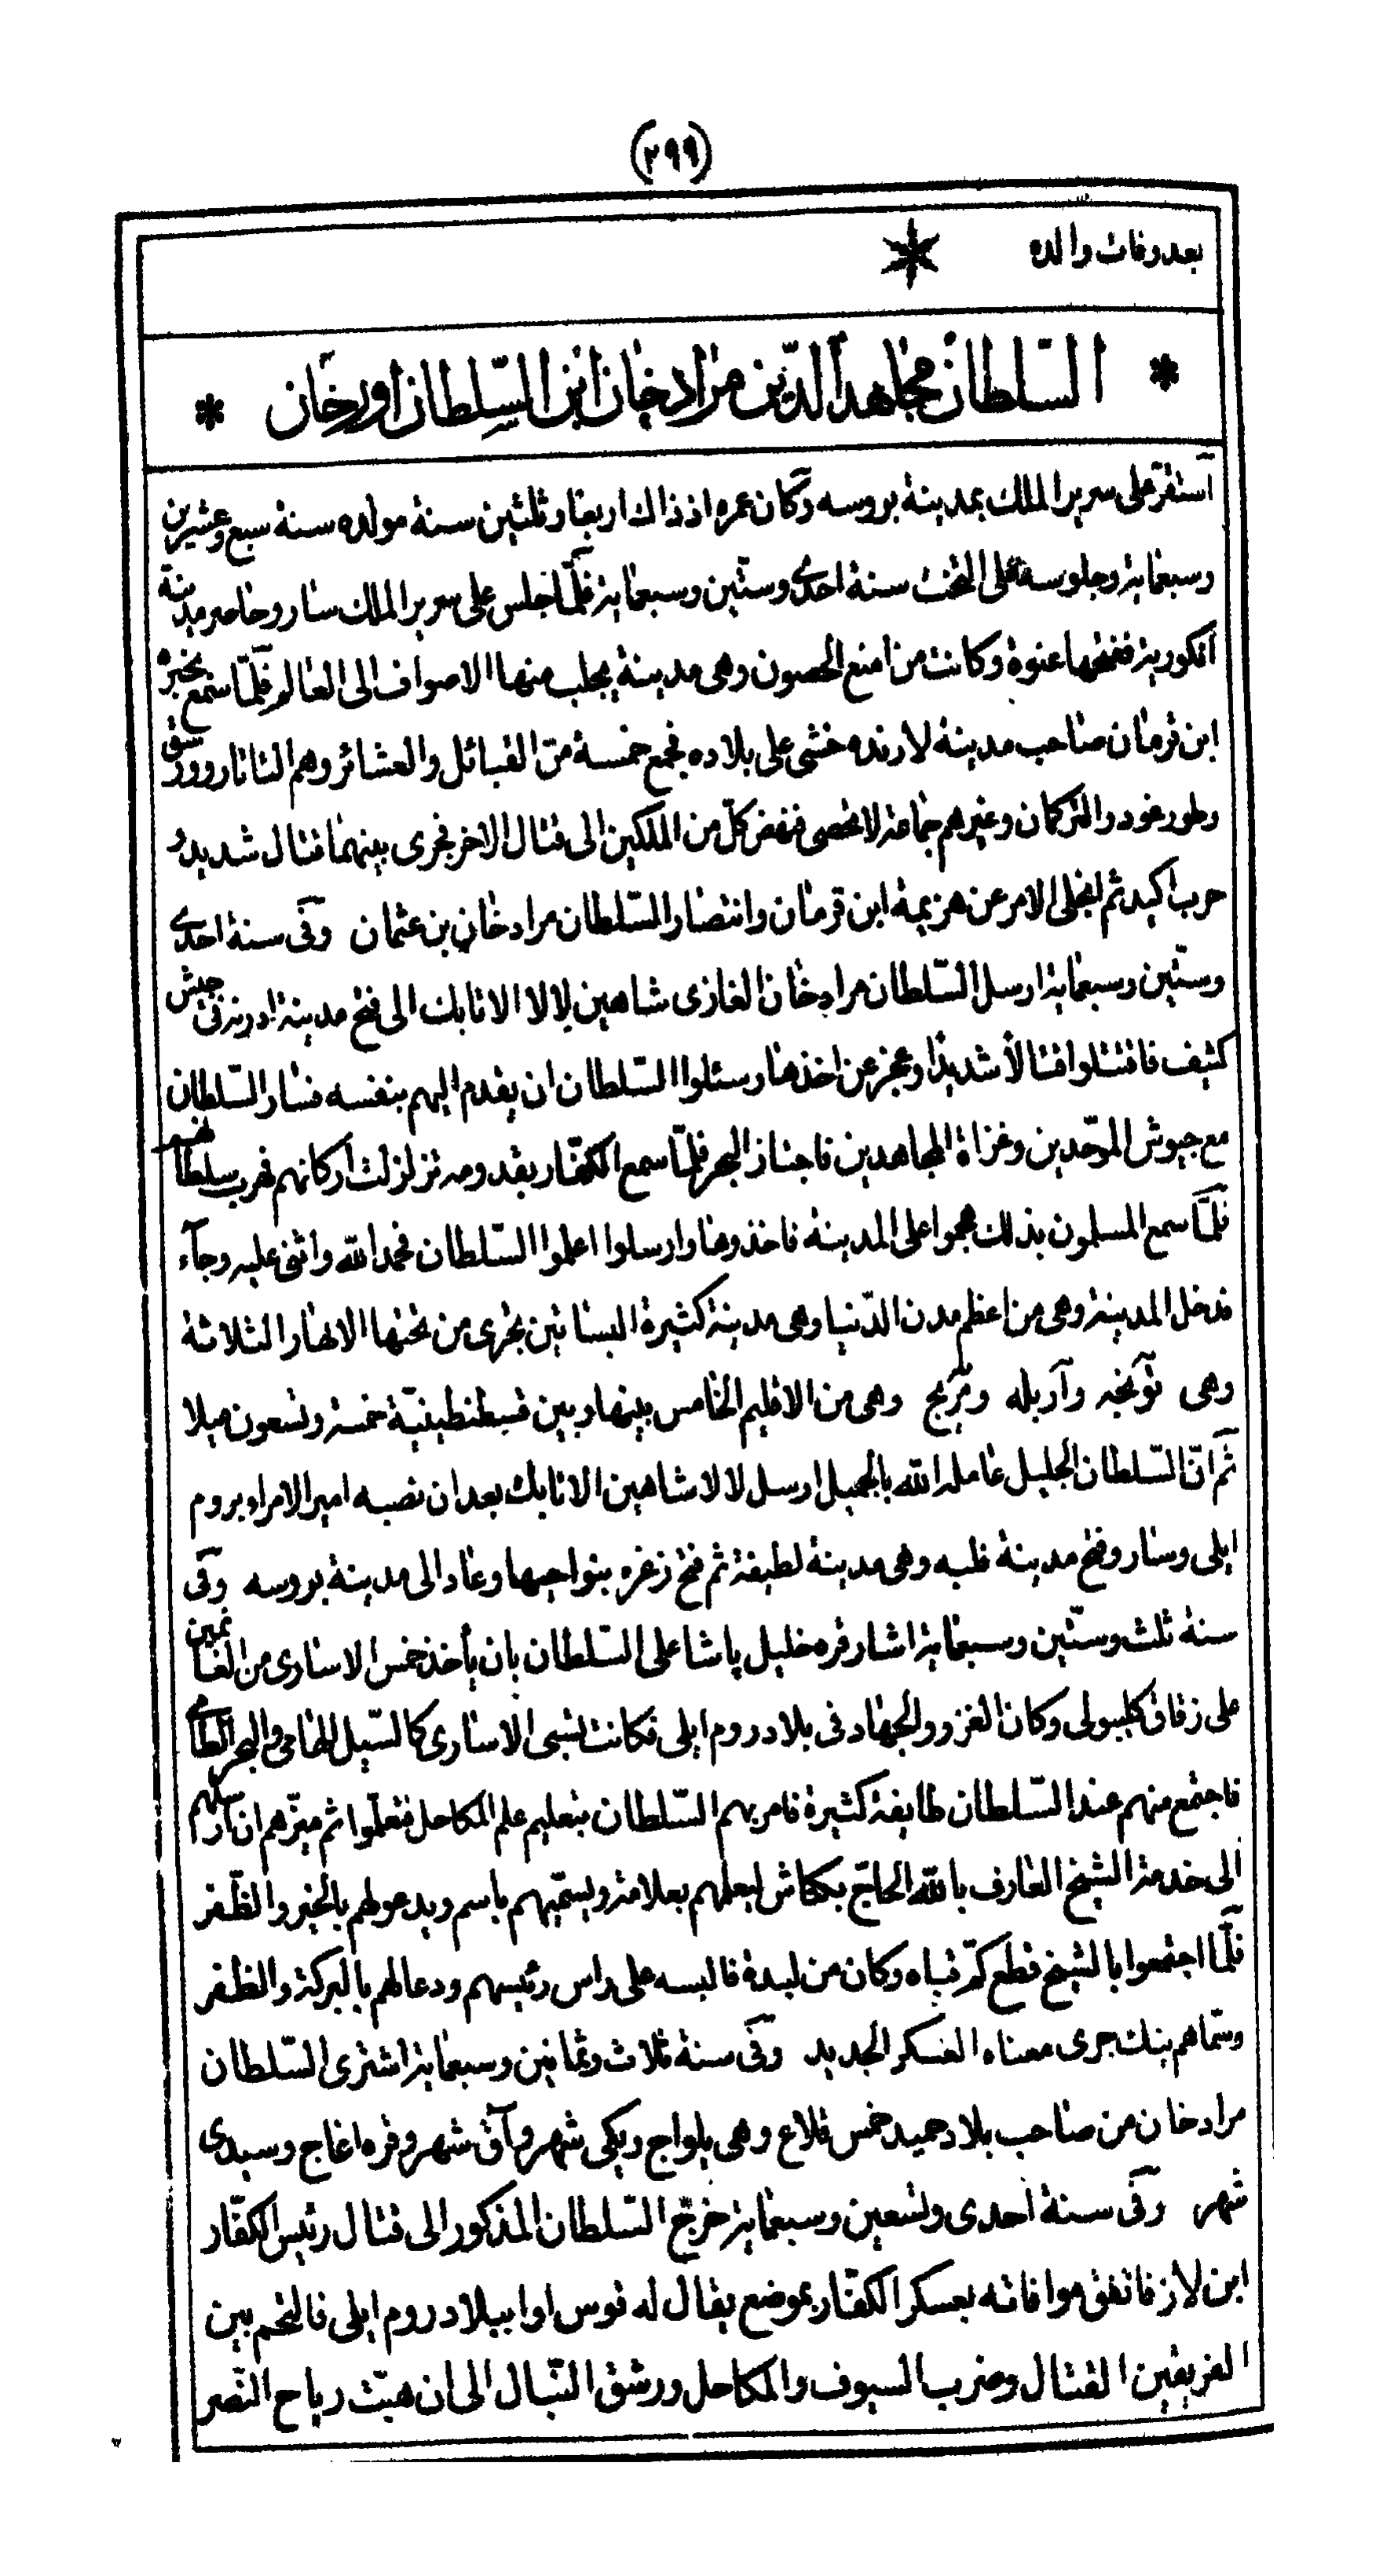 (٢٩٩)
بعد وفات والده
* السلطان مجاهد الدين مراد خان ابن السلطان اورخان *
استقر على سرير الملك بمدينة بروسه وكان عمره اذ ذاك اربعا وثلثين سنة مولده سنة سبع وعشرين
وسبعماية وجلوسه على التخت سنة احدى وستين وسبعماية فلما جلس على سرير الملك سار وحاصر مدينة
انكورية ففتحها عنوة وكانت من امنع الحصون وهى مدينة يجلب منها الاصواف الى العالم فلما سمع بخبره
ابن قرمان صاحب مدينة لارنده خشى على بلاده فجمع خمسة من القبائل والعشائر وهم التاتار وورسق
وطورغود والتركمان وغيرهم جماعة لا تحصى فنهض كل من الملكين الى قتال الاخر فجرى بينهما قتال شديد و
حرب اكيد ثم انجلى الامر عن هزيمة ابن قرمان وانتصار السلطان مراد خان بن عثمان وفى سنة احدى
وستين وسبعماية ارسل السلطان مراد خان الغازى شاهين لالا الاتابك الى فتح مدينة ادرنه فى جيش
كثيف فاقتتلوا قتالا شديدا وعجز عن اخذها وسئلوا السلطان ان يقدم اليهم بنفسه فسار السلطان
مع جيوش الموحدين وغزاة المجاهدين فاجتاز البحر فلما سمع الكفار بقدومه تزلزلت اركانهم فهرب سلطانهم
فلما سمع المسلمون بذلك هجموا على المدينة فاخذوها وارسلوا اعلموا السلطان فحمد الله واثنى عليه وجآء
فدخل المدينة وهى من اعظم مدن الدنيا وهى مدينة كثيرة البساتين يجرى من تحتها الانهار الثلاثة
وهى تونجه وآربله ومريج وهى من الاقليم الخامس بينها وبين قسطنطينية خمسة وتسعون ميلا
ثم ان السلطان الجليل عامله الله بالجميل ارسل لالا شاهين الاتابك بعد ان نصبه امير الامراء بروم
ايلى وسار وفتح مدينة فلبه وهى مدينة لطيفة ثم فتح زغره بنواحيها وعاد الى مدينة بروسه وفى
سنة ثلث وستين وسبعماية اشار قره خليل پاشا على السلطان بان يأخذ خمس الاسارى من الغانمين
على زقاق كليبولى وكان الغزو والجهاد فى بلاد روم ايلى فكانت تسبى الاسارى كالسيل الهامى والبحر الطامى
فاجتمع منهم عند السلطان طايفة كثيرة فامر بهم السلطان بتعليم علم المكاحل فتعلموا ثم ميزهم ان ارسلهم
الى خدمة الشيخ العارف بالله الحاج بكتاش ليعلمهم بعلامة ويسميهم باسم ويدعو لهم بالخير والظفر
فلما اجتمعوا بالشيخ قطع كم قباه وكان من لبدة فالبسه على راس رئيسهم ودعا لهم بالبركة والظفر
وسماهم ينك جرى معناه العسكر الجديد وفى سنة ثلاث وثمانين وسبعماية اشترى السلطان
مراد خان من صاحب بلاد حميد خمس قلاع وهى يلواج ويكى شهر وآق شهر وقره اغاج وسيدى
شهر وفى سنة احدى وتسعين وسبعماية خرج السلطان المذكور الى قتال رئيس الكفار
ابن لاز فاتفق موافاته بعسكر الكفار بموضع يقال له قوس اوا ببلاد روم ايلى فالتحم بين
الفريقين القتال وضرب السيوف والمكاحل ورشق النبال الى ان هبت رياح النصر